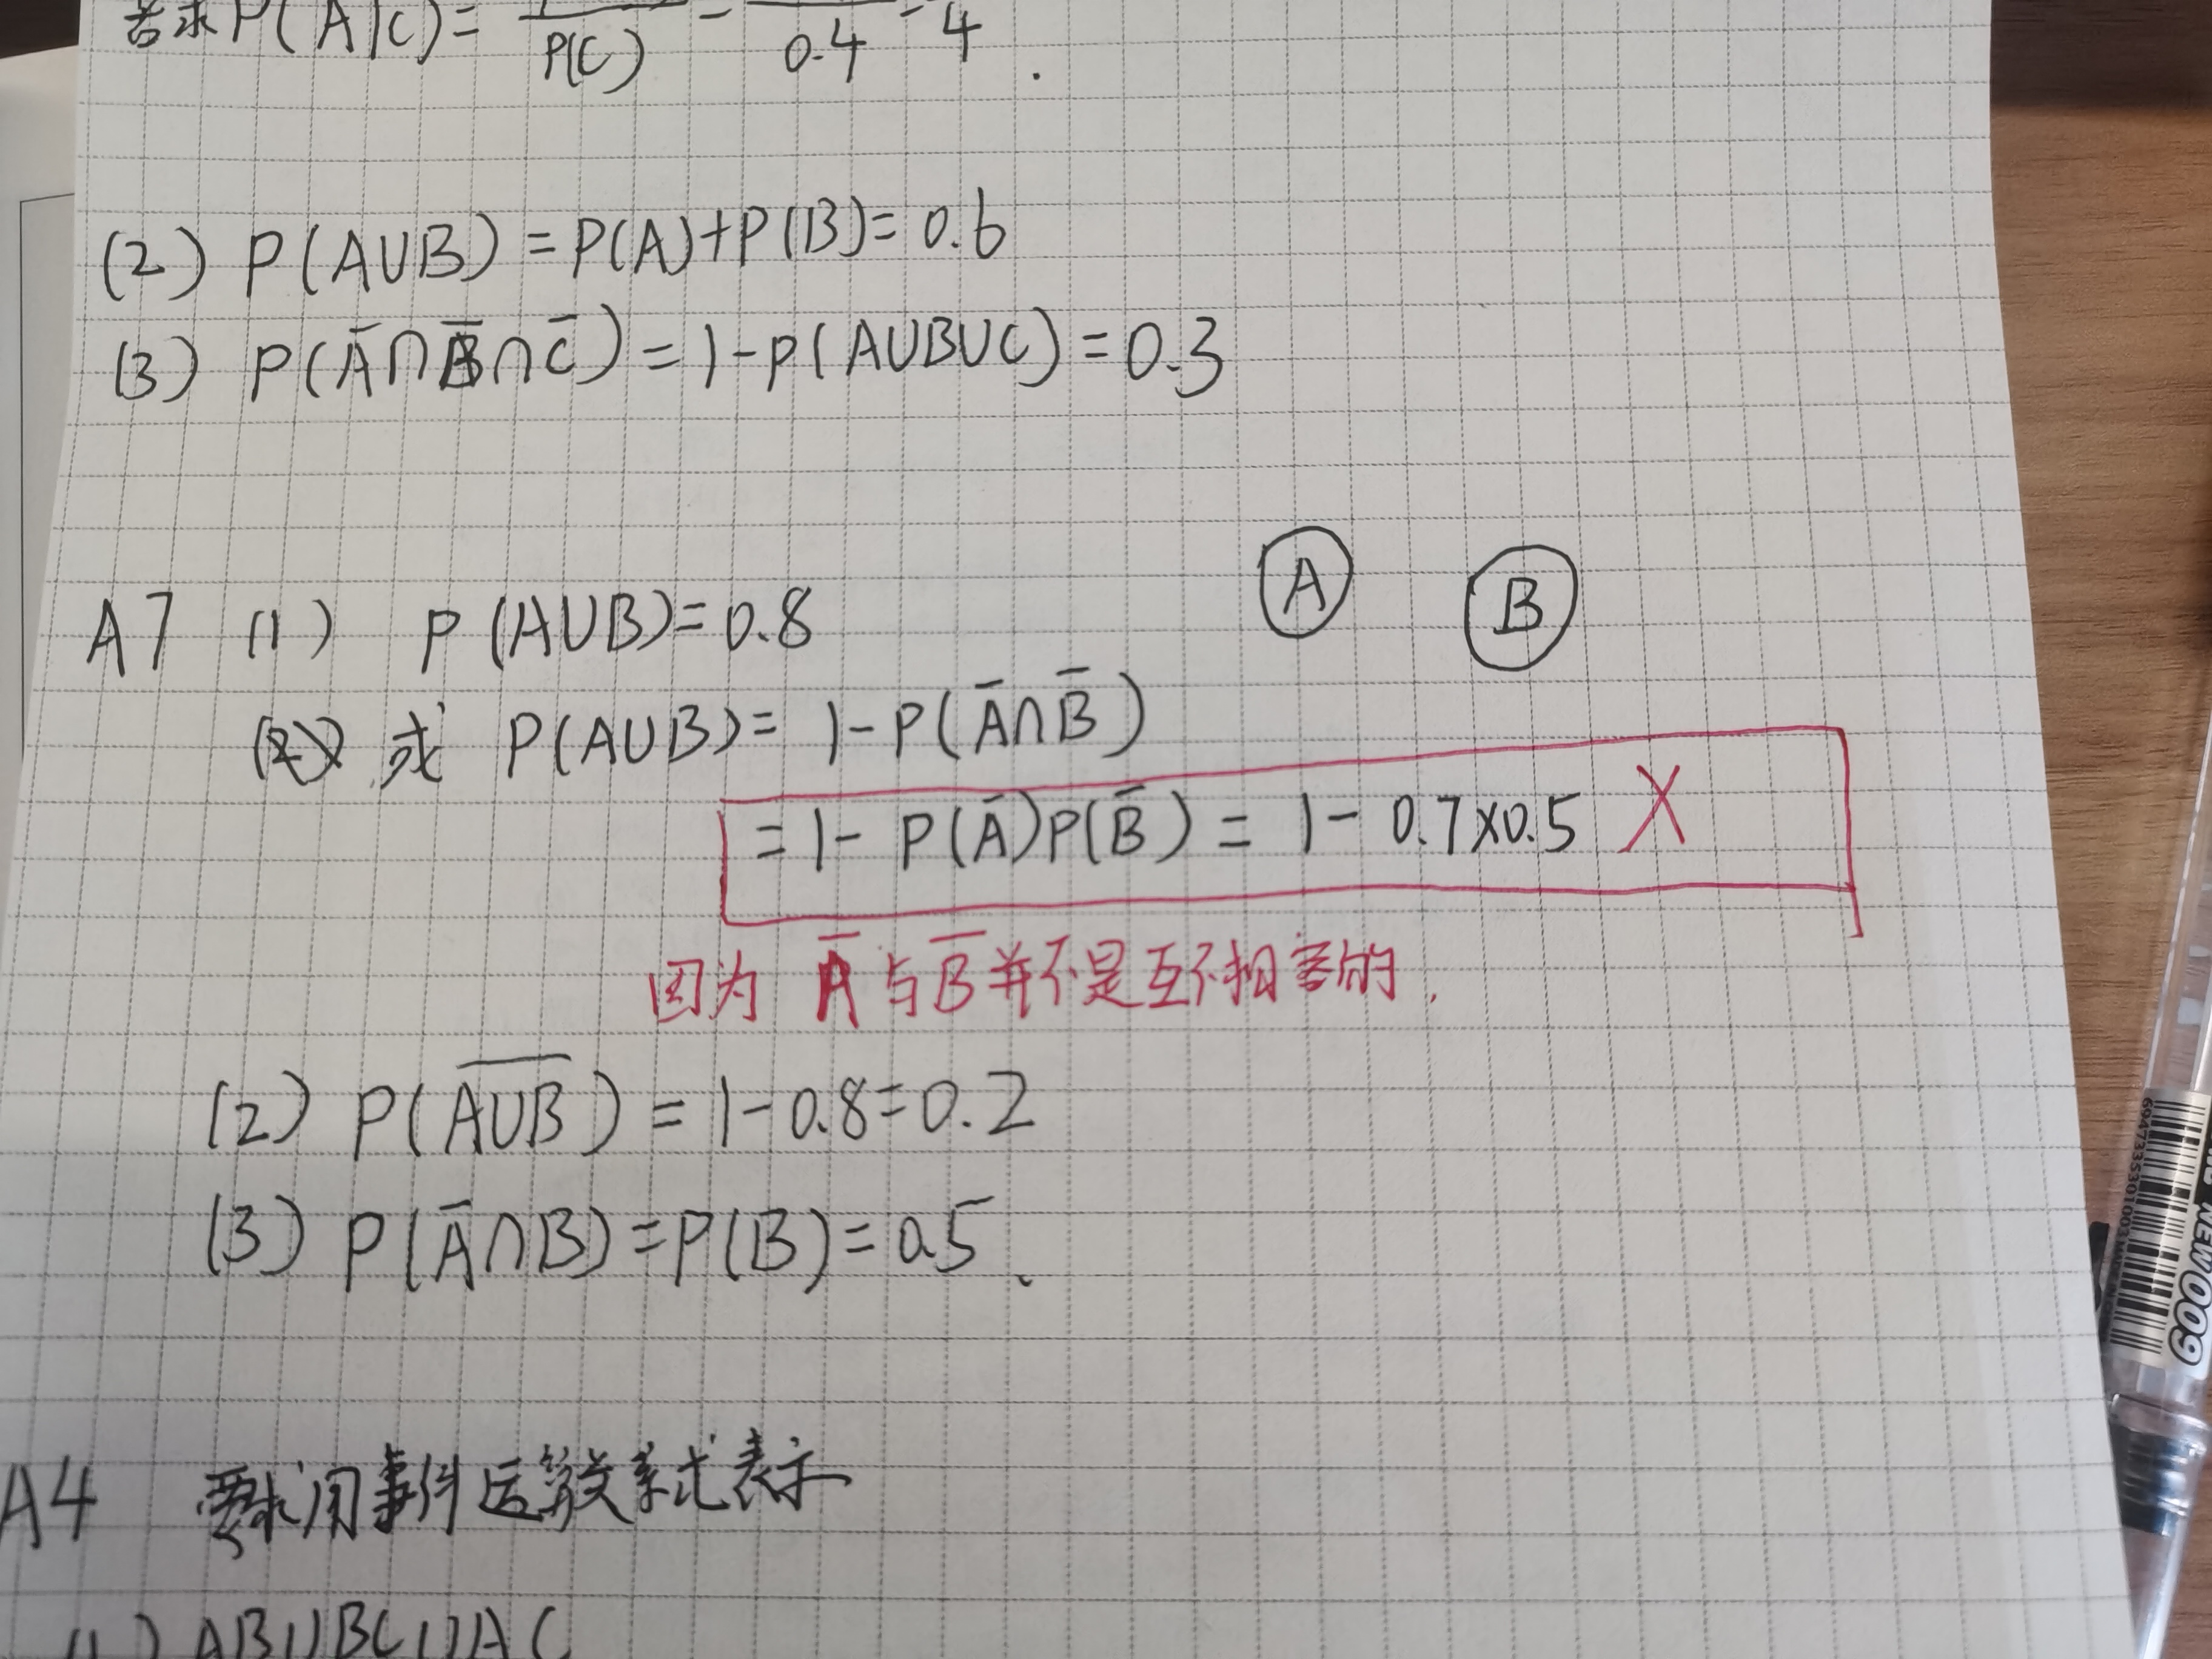 若求P(A|C)= P(C) - 0.4 - 4 .
(2) P(A∪B)=P(A)+P(B)=0.6
(3) P(A̅∩B̅∩C̅)=1-P(A∪B∪C)=0.3
A B
A7 (1) P(A∪B)=0.8
或 P(A∪B)= 1-P(A̅∩B̅)
=1- P(A̅)P(B̅)= 1- 0.7×0.5 X
因为 A̅与B̅并不是互不相容的.
(2) P(A̅∪̅B̅)=1-0.8=0.2
(3) P(A̅∩B)=P(B)=0.5.
A4 要求用事件运算关系式表示
(1) AB∪BC∪AC
600